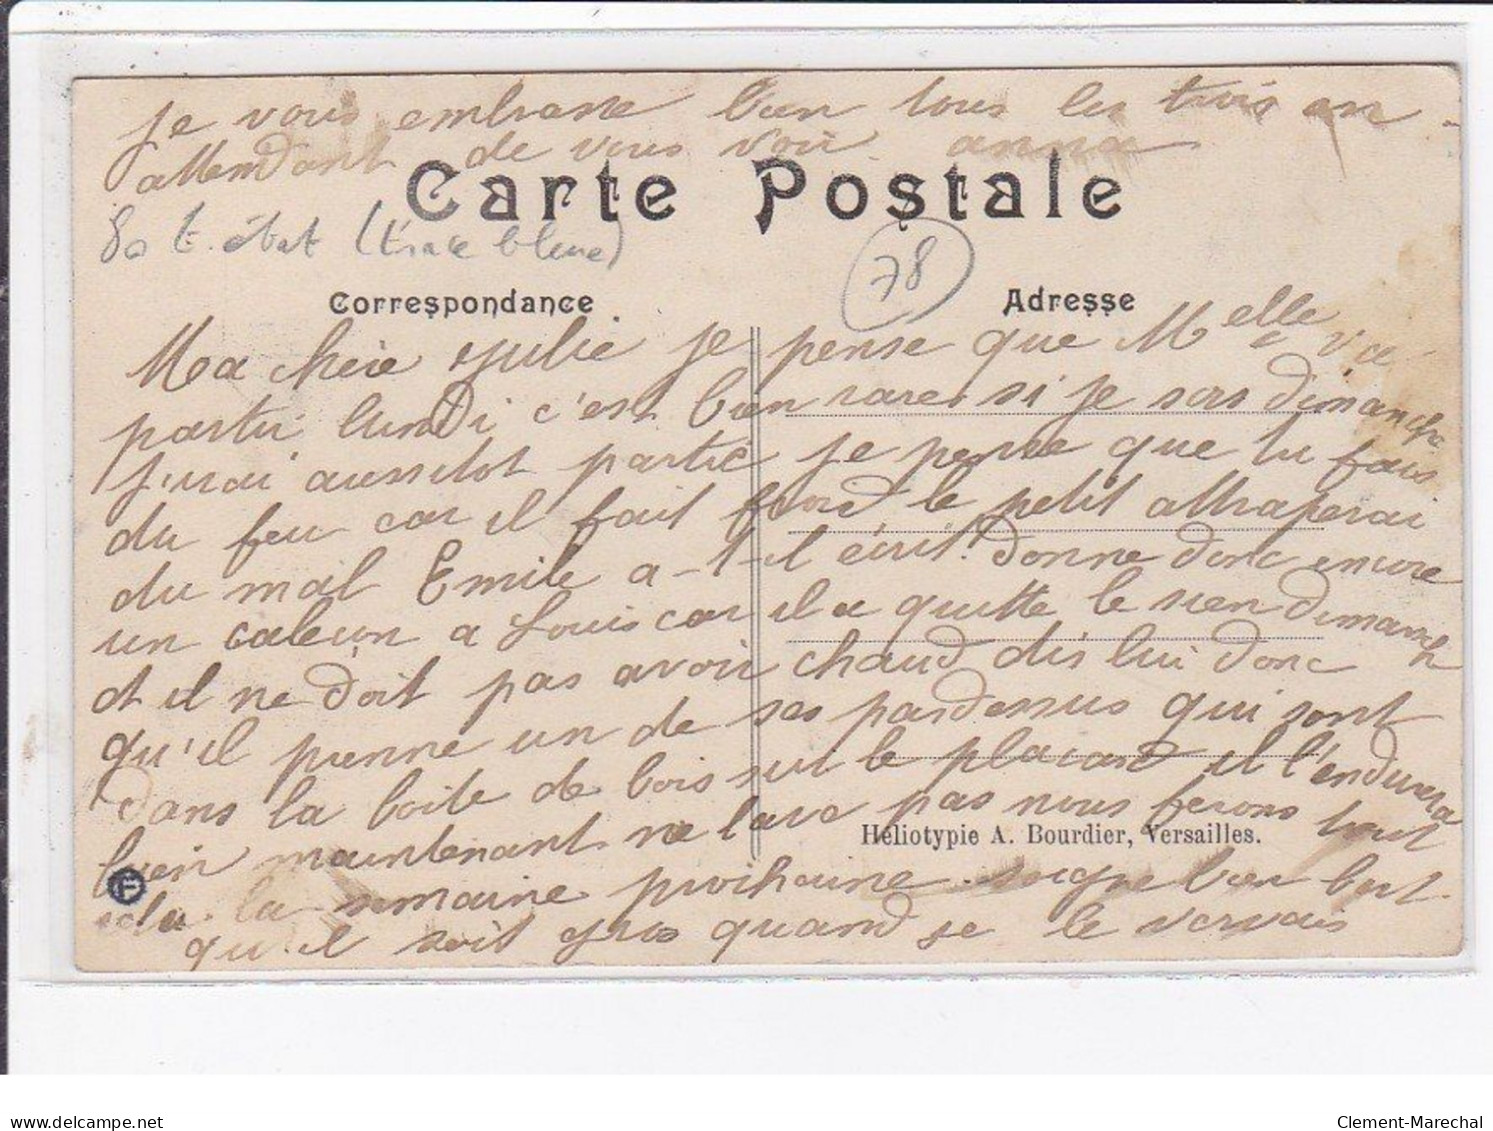 je vous embrasse bien tous les trois en
attendant de vous voir anna
Carte Postale
80 t. état (trace bleue)
78
Correspondance
Adresse
Ma chère Julie je pense que Melle
partir lundi c'est bien rare si je sors dimanche
j'irai aussitot partie je pense que tu fais
du feu car il fait froid le petit attraperai
du mal Emile a-t-il écrit. donne donc encore
un caleçon a Louis car il a quitte le sien dimanch
et il ne doit pas avoir chaud dis lui donc
qu'il prenne un de ses pardessus qui sont
dans la boite de bois sur le placard il l'endurera
bien maintenant ne lave pas nous ferons tout
Héliotypie A. Bourdier, Versailles.
F
cela la semaine prochaine soigne bien
qu'il soit gros quand je le verrais
Clement-Marechal
www.delcampe.net